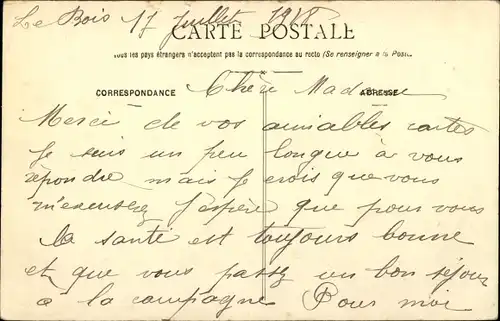 Le Bois 17 Juillet 1918
CARTE POSTALE
Tous les pays étrangers n'acceptent pas la correspondance au recto (Se renseigner à la Poste)
CORRESPONDANCE
ADRESSE
Chère Madame
Merci de vos aimables cartes
Je suis un peu longue à vous
répondre mais Je crois que vous
m'excuserez J'espère que pour vous
la santé est toujours bonne
et que vous passez un bon séjour
à la campagne Pour moi